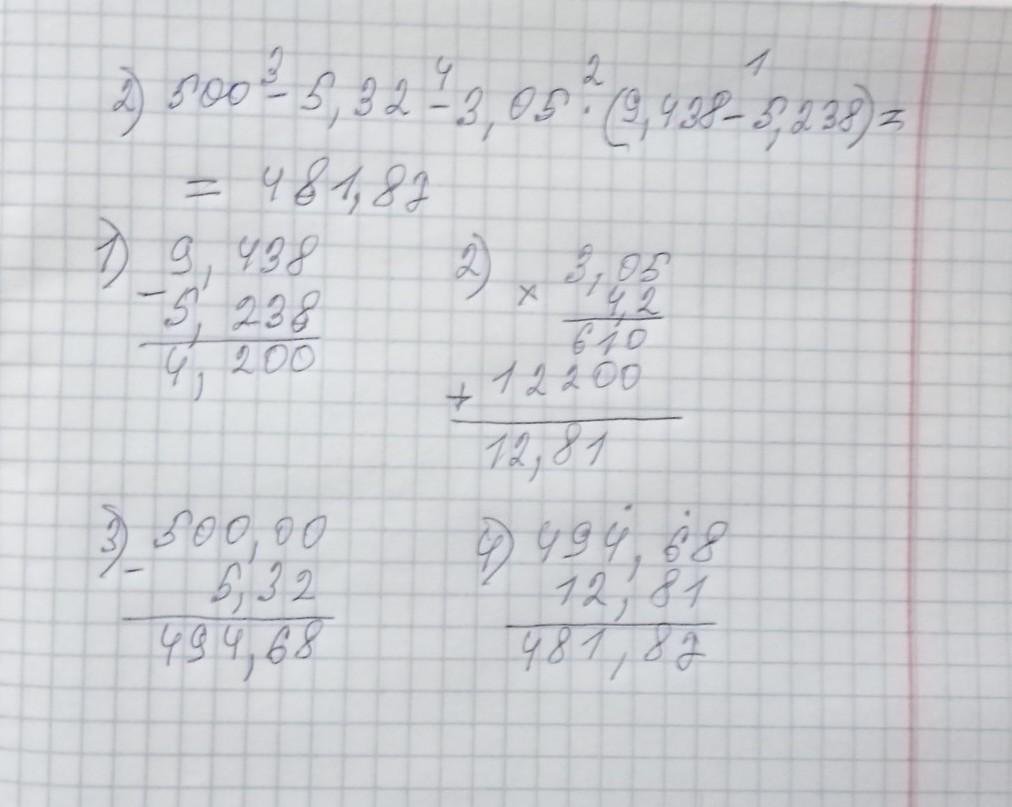 2) 500 - 5,32 - 3,05 · (9,438 - 5,238) =
3 4 2 1
= 481,87
1) 9,438
- 5,238
4,200
2) 3,05
× 4,2
610
+ 12200
12,81
3) 500,00
- 5,32
494,68
4) 494,68
12,81
481,87